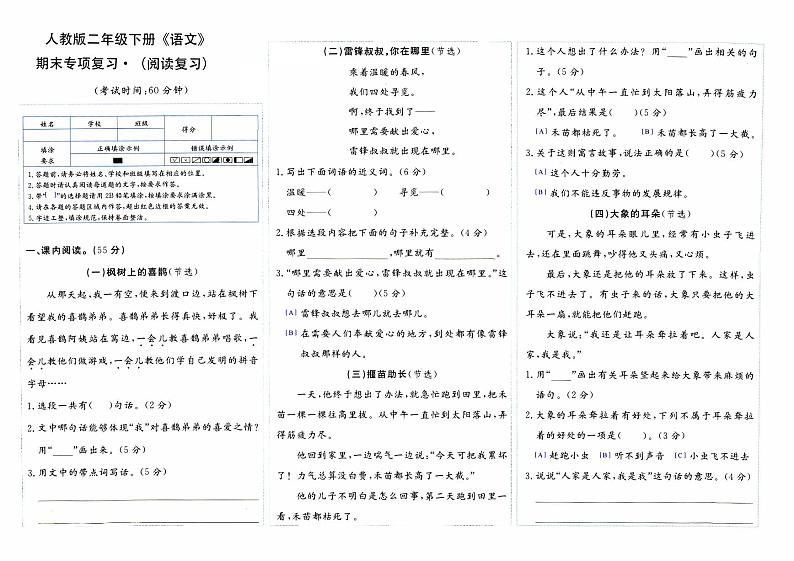 人教版二年级下册《语文》
期末专项复习·（阅读复习）
(考试时间:60分钟)
姓名 学校 班级 得分
填涂要求 正确填涂示例 错误填涂示例
1.答题前,请务必将姓名,学校和班级填写在相应的位置。
2.答题时请认真阅读每道题的文字,按要求作答。
3.带“[ ]”的选择题请用2B铅笔填涂,按填涂要求涂满涂黑。
4.请在各题的答题区域内作答,超出红色边框的答案无效。
5.字迹工整,填涂规范,保持卷面整洁。
一、课内阅读。(55分)
(一)枫树上的喜鹊(节选)
从那天起,我一有空,便来到渡口边,站在枫树下
看望我的喜鹊弟弟。喜鹊弟弟长得真快,好极了。我
看见喜鹊阿姨站在窝边,一会儿教喜鹊弟弟唱歌,一
会儿教他们做游戏,一会儿教他们学自己发明的拼音
字母……
1.选段一共有( )句话。(2分)
2.文中哪句话能够体现“我”对喜鹊弟弟的喜爱之情?
用“____”画出来。(5分)
3.用文中的带点词写话。(5分)
(二)雷锋叔叔,你在哪里(节选)
乘着温暖的春风,
我们四处寻觅。
啊,终于找到了——
哪里需要献出爱心,
雷锋叔叔就出现在哪里。
1.写出下面词语的近义词。(6分)
温暖——( ) 寻觅——( )
四处——( )
2.根据选段内容把下面的句子补充完整。(4分)
哪里____________,哪里就有____________。
3.“哪里需要献出爱心,雷锋叔叔就出现在哪里。”这
句话的意思是( )(5分)
[A] 雷锋叔叔想去哪儿就去哪儿。
[B] 在需要人们奉献爱心的地方,到处都有像雷锋
叔叔那样的人。
(三)揠苗助长(节选)
一天,他终于想出了办法,就急忙跑到田里,把禾
苗一棵一棵往高里拔。从中午一直忙到太阳落山,弄
得筋疲力尽。
他回到家里,一边喘气一边说:“今天可把我累坏
了!力气总算没白费,禾苗都长高了一大截。”
他的儿子不明白是怎么回事,第二天跑到田里一
看,禾苗都枯死了。
1.这个人想出了什么办法?用“____”画出相关的句
子。(5分)
2.这个人“从中午一直忙到太阳落山,弄得筋疲力
尽”,最后结果是( )(5分)
[A] 禾苗都枯死了。 [B] 禾苗都长高了一大截。
3.关于这则寓言故事,说法正确的是( )(5分)
[A] 这个人十分勤劳。
[B] 我们不能违反事物的发展规律。
(四)大象的耳朵(节选)
可是,大象的耳朵眼儿里,经常有小虫子飞进
去,还在里面跳舞,吵得他又头痛,又心烦。
最后,大象还是把他的耳朵放了下来。这样,虫
子飞不进去了。有虫子来的话,大象只要把他的大
耳朵一扇,就能把他们赶跑。
大象说:“我还是让耳朵耷拉着吧。人家是人
家,我是我。”
1.用“____”画出有关耳朵竖起来给大象带来麻烦的
语句。(2分)
2.大象的耳朵耷拉着有好处,下列不属于耳朵耷拉
着的好处的一项是( )。(3分)
[A] 赶跑小虫 [B] 听不到声音 [C] 小虫飞不进去
3.说说“人家是人家,我是我”这句话的意思。(4分)